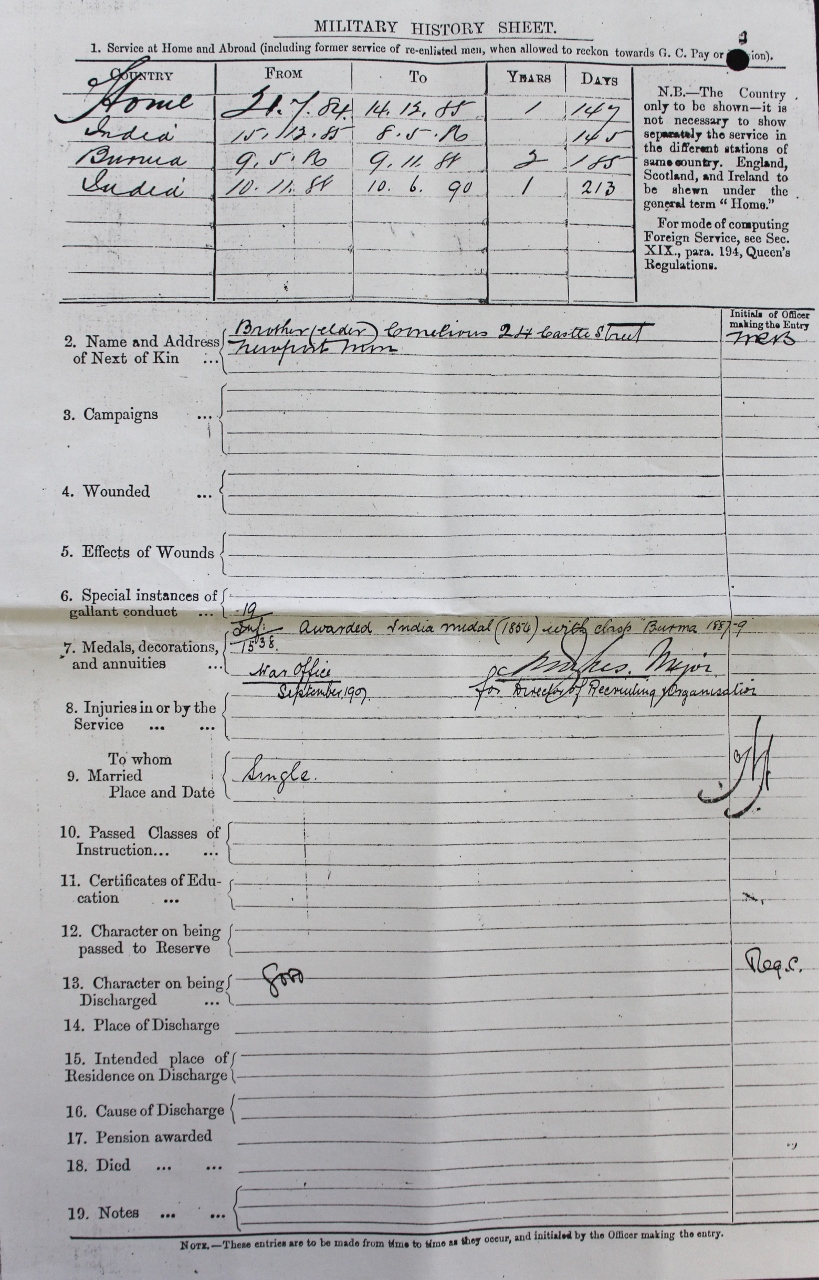 MILITARY HISTORY SHEET.
1. Service at Home and Abroad (including former service of re-enlisted men, when allowed to reckon towards G. C. Pay or ion).
COUNTRY FROM TO YEARS DAYS
Home 21.7.84 14.12.85 1 147
India 15.12.85 8.5.86 145
Burma 9.5.86 9.11.88 2 185
India 10.11.88 10.6.90 1 213
N.B.—The Country
only to be shown—it is
not necessary to show
separately the service in
the different stations of
same country. England,
Scotland, and Ireland to
be shewn under the
general term "Home."
For mode of computing
Foreign Service, see Sec.
XIX., para. 194, Queen's
Regulations.
Initials of Officer
making the Entry
2. Name and Address Brother (elder) Cornelious 24 Castle Street
of Next of Kin ... Newport Mon
3. Campaigns ...
4. Wounded ...
5. Effects of Wounds
6. Special instances of
gallant conduct ... 19
Inf: Awarded India medal (1854) with clasp "Burma 1887-9"
7. Medals, decorations, 1538.
and annuities ... War Office Major
September, 1907 for Director of Recruiting & Organisation
8. Injuries in or by the
Service ... ...
To whom
9. Married Single.
Place and Date
10. Passed Classes of
Instruction... ...
11. Certificates of Edu-
cation ...
12. Character on being
passed to Reserve
13. Character on being Good
Discharged ...
14. Place of Discharge
15. Intended place of
Residence on Discharge
16. Cause of Discharge
17. Pension awarded
18. Died ... ...
19. Notes ... ...
NOTE.—These entries are to be made from time to time as they occur, and initialed by the Officer making the entry.